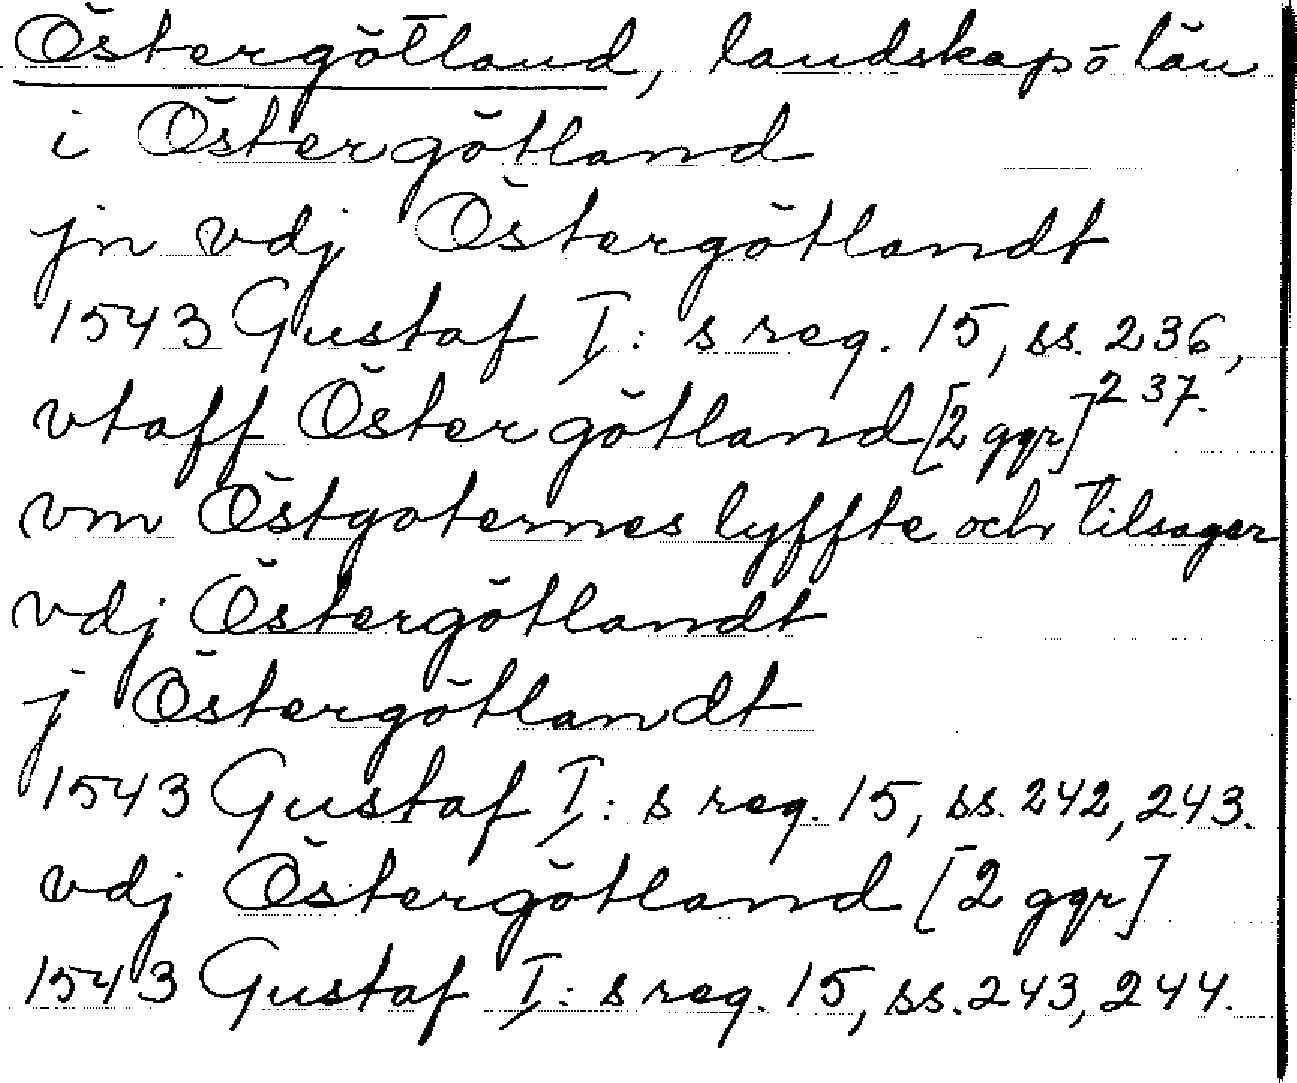 Östergötland, landskap o län
i Östergötland
jn vdj Östergötlandt
1543 Gustaf I:s reg. 15, ss. 236, 237.
vtaff Östergötland [2 ggr]
vm Östgoternes lyffte och tilsager
vdj Östergötlandt
j Östergötlandt
1543 Gustaf I:s reg. 15, ss. 242, 243.
vdj Östergötland [2 ggr]
1543 Gustaf I:s reg. 15, ss. 243, 244.